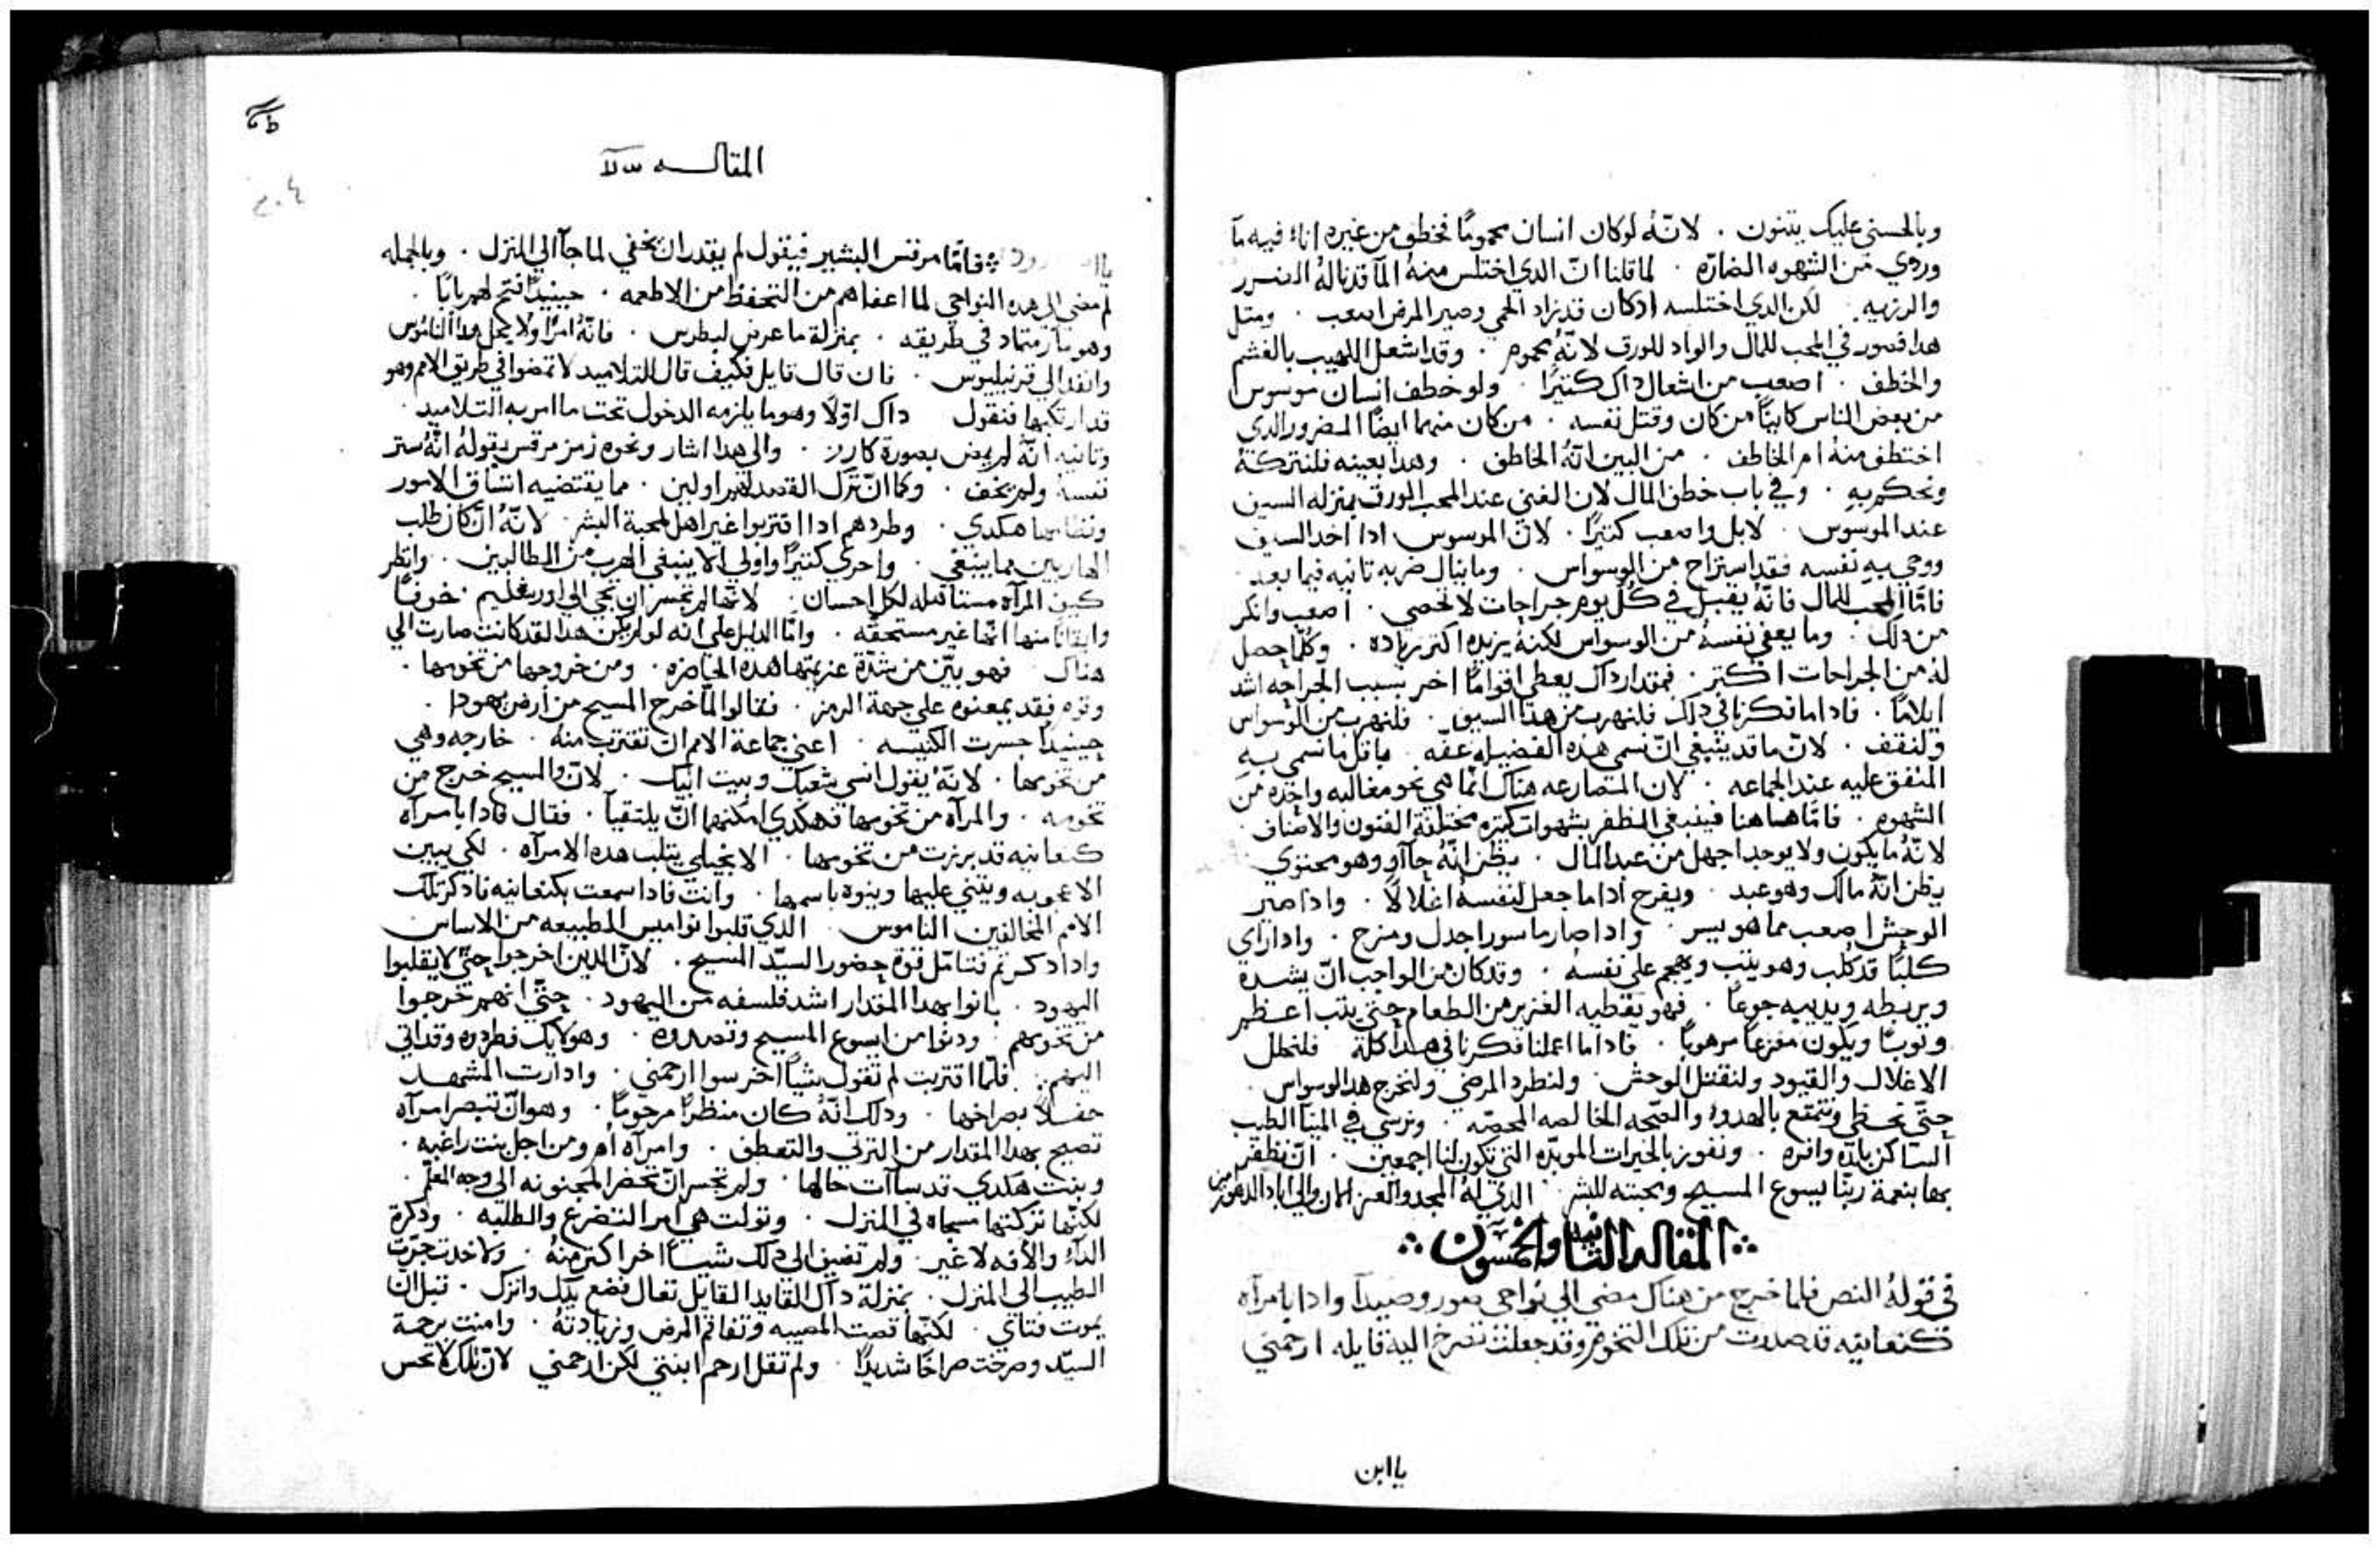 وبالحسني عليك يتنون . لانّهُ لوكان انسان محمومًا فخطف من غيره اناءً فيه مآ
وروي من الشهوه الضارّه . لما قلنا انّ الدي اختلس منهُ المآ قد ناله الضرر
والرزيه . لكن الدي اختلسه ادكان قد زاد الحمي وصير المرض اصعب . ومتل
هدا فصور في المحب للمال والواد للورق لانّهُ محموم . وقد اشعل اللهيب بالغشم
والخطف . اصعب من اشعال داك كتيرًا . ولو خطف انسان موسوس
من بعض الناس كاينًا من كان وقتل نفسه . من كان منهما ايضًا المضرور الدي
اختطف منهُ ام الخاطف . من البين انّهُ الخاطف . وهدا بعينه فلنتركهُ
ونحكم به . وفي باب خطف المال لان الغني عند المحب الورق بمنزله السيف
عند الموسوس . لا بل واصعب كتيرًا . لانّ الموسوس ادا اخد السيف
ووجي به نفسه فقد استراح من الوسواس . وما ينال ضربه تانيه فيما بعد .
فامّا المحب المال فانّهُ يقبل في كل يوم جراحات لا تحصي . اصعب وانكر
من دلك . وما يعفي نفسهُ من الوسواس لكنهُ يزيده اكتر زياده . وكلّما حصل
لهُ من الجراحات اكتر . فمقدار داك يعطي اقوامًا اخر بسبب الجراحه اشد
ايلامًا . فادا ما فكرنا في دلك فلنهرب من هدا السيف . فلنهرب من الوسواس
ولنقف . لانّ ما قد ينبغي انّ نسمي هده الفضيله عفّه . باقل ما نسمي به
المتفق عليه عند الجماعه . لان المصارعه هناك انّما هي نحو مغالبه واحده من
الشهوه . فامّا هاهنا فينبغي الظفر بشهوات كتيره مختلفة الفنون والاصناف .
لانّهُ ما يكون ولا يوجد اجهل من عبد المال . يظن انّهُ جآاو وهو محتوي
يظن انّهُ مالك وهو عبد . ويفرح ادا ما جعل لنفسهُ اغلالاً . وادا صير
الوحش اصعب مما هو يسر . وادا صار ماسورا جدل ومرح . وادا راي
كلبًا قد كلب وهو يتب ويهجم على نفسهُ . وقد كان من الواجب انّ يشدهُ
ويربطه ويديبه جوعًا . فهو يعطيه الغزير من الطعام حتي يتب اعظم
وتوبًا ويكون مفزعًا مرهوبًا . فادا ما اعملنا فكرنا في هدا كلهُ فلنحلل
الاغلال والقيود ولنقتل الوحش . ولنطرد المرض ولنخرج هدا الوسواس .
حتّي نحظي ونتمتع بالهدوء والصّحه الخالصه المحضّه . ونرسي في المينآ الطيب
السّاكن بلدّه وافره . ونفوز بالخيرات الموبّده التي تكون لنا اجمعين . انّ نظفر
بها بنعمة ربّنا يسوع المسيح ومحبته للبشر . الدي لهُ المجد والعز الان والي اباد الدهور امين
المقاله التانيه والخمسون
في قولهُ النص فلما خرج من هناك مضي الي نواحي صور وصيدآ وادا بامراه
كنعانيه قد صدرت من تلك التخوم وقد جعلت تصرخ اليه قايله ارحمني
يا ابن
المقاله
فامّا مرقس البشير فيقول لم يقدر انّ يخفي لما جآ الي المنزل . وبالجمله
لم مضي الي هده النواحي لما اعفاهم من التحفظ من الاطعمه . حينيدٍ افتح لهم بابًا .
وهو متماد في طريقه . بمنزلة ما عرض لبطرس . فانّهُ امرًا ولا يحمل هدا الناموس
وانفد الي قرنيليوس . فان قال قايل فكيف قال للتلاميد لا تمضوا في طريق الامم وهو
قد ارتكبها فنقول داك اوّلاً وهو ما يلزمه الدخول تحت ما امر به التلاميد .
وتانيه انّهُ لم يمض بصورة كارز . والي هدا اشار ونحوه رمز مرقس بقولهُ انّهُ ستر
نفسهُ ولم يخف . وكما انّ ترك القصد لهم اولين . مما يقتضيه اتساق الامور
ونظامها هكدي . وطردهم ادا اقتربوا غير اهل لمحبة البشر . لانّهُ انّ كان طلب
الهاربين مما ينبغي . واحري كتيرًا واولي الا ينبغي الهرب من الطالبين . وانظر
كيف المرآه مستاهله لكل احسان . لانّها لم تجسر ان تجي الي اورشليم خوفًا
وايقانًا منها انّها غير مستحقّه . وامّا الدليل علي انه لو لم يكن هدا لقد كانت صارت الي
هناك فهو بيّن من شدّة عزيمتها هده الحاضره . ومن خروجها من تخومها .
وقوم فقد يمعنوه علي جهة الرمز . فقالوا لمّا خرج المسيح من ارض يهودا .
حينيدًا جسرت الكنيسه . اعني جماعة الامم ان تقترب منهُ . خارجه وهي
من تخومها . لانّهُ يقول انسي شعبك وبيت ابيك . لانّ والمسيح خرج من
تخومه . والمرآه من تخومها فهكدي امكنهما انّ يلتقيا . فقال فادا بامرآه
كنعانيه قد برزت من تخومها . الانجيلي يتلب هده الامرآه . لكي يبين
الاعجوبه ويتني عليها وينوه باسمها . وانت فادا سمعت بكنعانيه فادكر تلك
الامم المخالفين الناموس . الدي قلبوا نواميس الطبيعه من الاساس
وادا دكرتم نتامّل قوة حضور السيّد المسيح . لانّ الدين اخرجوا حتّي لا يقلبوا
اليهود . بانوا بهدا المقدار اشد فلسفه من اليهود . حتّي انّهم خرجوا
من تخومهم . ودنوا من ايسوع المسيح وقصدوه . وهولايك فطردوه وقد اتي
اليهم . فلمّا اقتربت لم تقول شيًا اخر سوا ارحمني . وادارت المشهد
حفلاً بصراخها . ودلك انّهُ كان منظرًا مرحومًا . وهو انّ تبصر امرآه
تصيح بهدا المقدار من الترتي والتعطف . وامرآه اُم ومن اجل بنت راغبه .
وبنت هكدي قد سآات حالها . ولم تجسر انّ تحضر المجنونه الي وجه المعلّم .
لكنّها تركتها مسجاه في المنزل . وتولت هي امر التضرع والطلبه . ودكرة
الدآء والآفه لا غير . ولم تضيف الي دلك شيًا اخر اكتر منهُ . ولا خدت جرّت
الطبيب الي المنزل . بمنزلة داك القايد القايل تعال فضع يدك وانزل . قبل ان
يموت فتاي . لكنّها قصت المصيبه وتفاقم المرض وزيادتهُ . وامنت برحمة
السيّد وصرخت صراخًا شديدًا . ولم تقل ارحم ابنتي لكن ارحمني لانّ تلك لا تحس